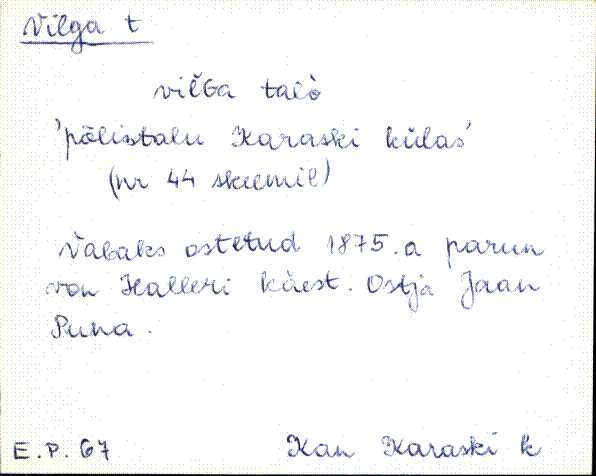 Vilga t
vilɢa talò
'põlistalu Karaski külas'
(nr 44 skeemil)
Vabaks ostetud 1875. a parun
von Halleri käest. Ostja Jaan
Puna.
E.P. 67
Kan Karaski k